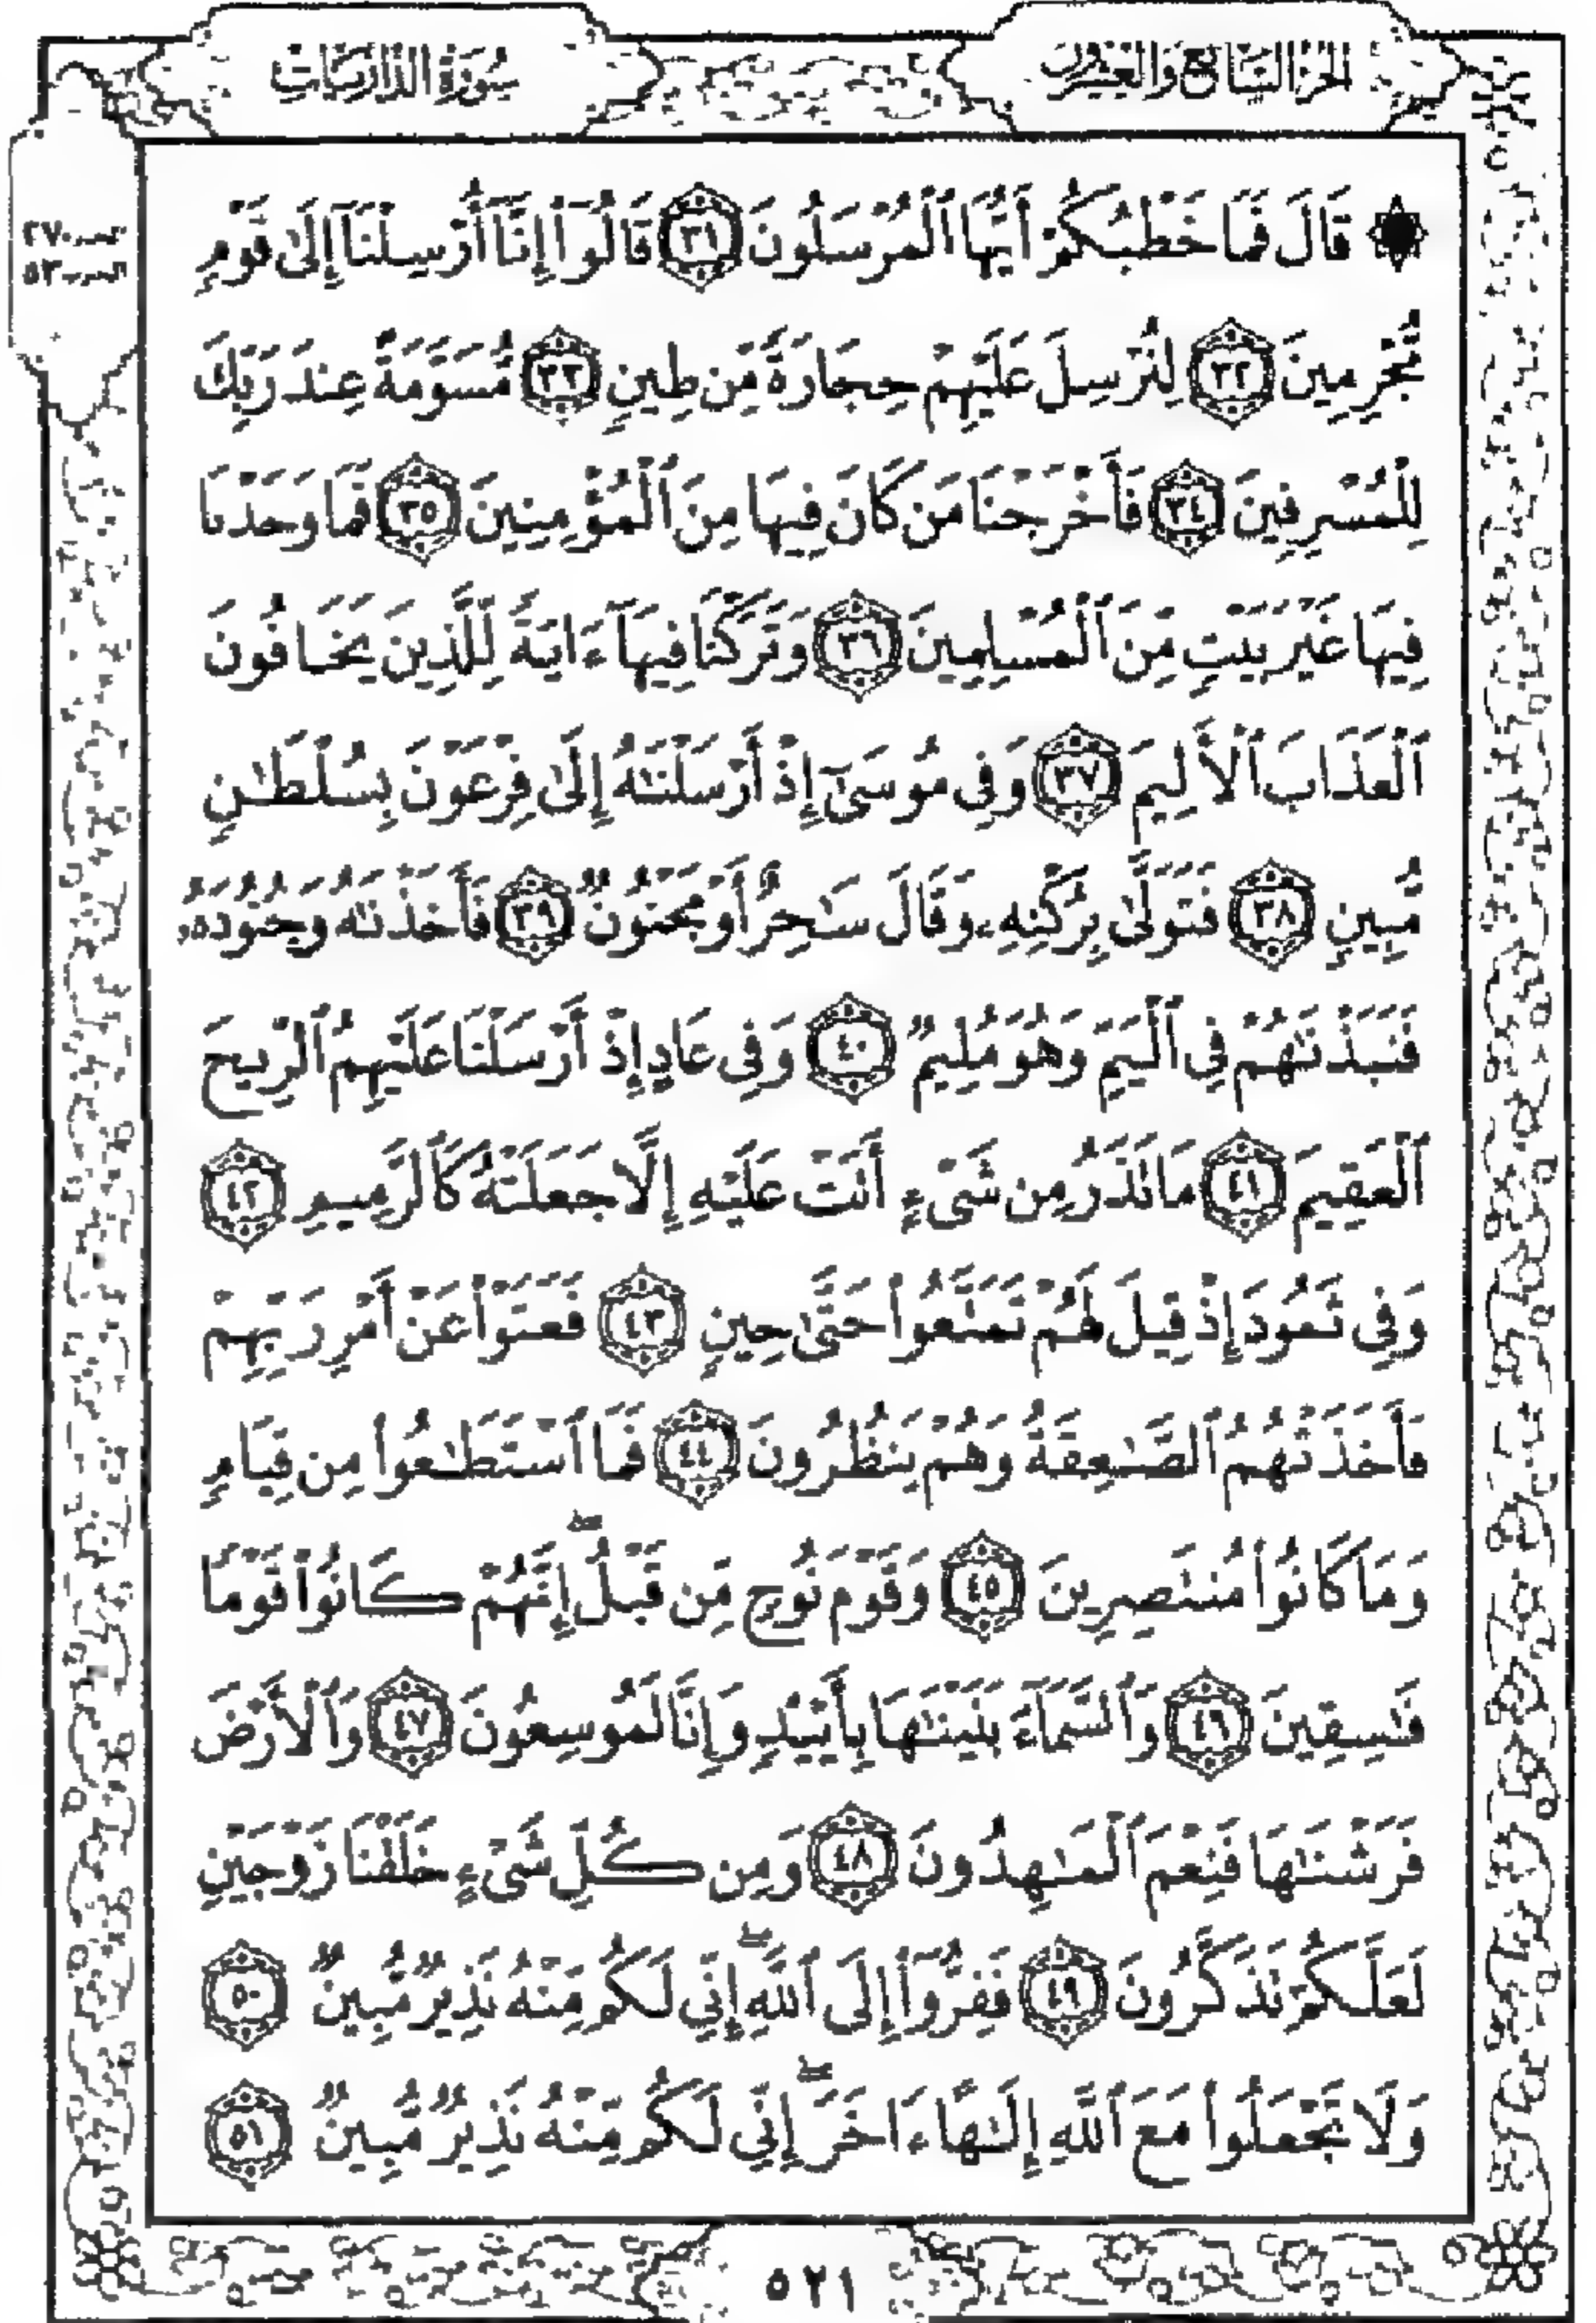 الجزء السابع والعشرون
سورة الذاريات
الحزب ٥٣
۞ قَالَ فَمَا خَطْبُكُمْ أَيُّهَا ٱلْمُرْسَلُونَ ٣١ قَالُوٓا۟ إِنَّآ أُرْسِلْنَآ إِلَىٰ قَوْمٍ
مُّجْرِمِينَ ٣٢ لِنُرْسِلَ عَلَيْهِمْ حِجَارَةً مِّن طِينٍ ٣٣ مُّسَوَّمَةً عِندَ رَبِّكَ
لِلْمُسْرِفِينَ ٣٤ فَأَخْرَجْنَا مَن كَانَ فِيهَا مِنَ ٱلْمُؤْمِنِينَ ٣٥ فَمَا وَجَدْنَا
فِيهَا غَيْرَ بَيْتٍ مِّنَ ٱلْمُسْلِمِينَ ٣٦ وَتَرَكْنَا فِيهَآ ءَايَةً لِّلَّذِينَ يَخَافُونَ
ٱلْعَذَابَ ٱلْأَلِيمَ ٣٧ وَفِى مُوسَىٰٓ إِذْ أَرْسَلْنَٰهُ إِلَىٰ فِرْعَوْنَ بِسُلْطَٰنٍ
مُّبِينٍ ٣٨ فَتَوَلَّىٰ بِرُكْنِهِۦ وَقَالَ سَٰحِرٌ أَوْ مَجْنُونٌ ٣٩ فَأَخَذْنَٰهُ وَجُنُودَهُۥ
فَنَبَذْنَٰهُمْ فِى ٱلْيَمِّ وَهُوَ مُلِيمٌ ٤٠ وَفِى عَادٍ إِذْ أَرْسَلْنَا عَلَيْهِمُ ٱلرِّيحَ
ٱلْعَقِيمَ ٤١ مَا تَذَرُ مِن شَىْءٍ أَتَتْ عَلَيْهِ إِلَّا جَعَلَتْهُ كَٱلرَّمِيمِ ٤٢
وَفِى ثَمُودَ إِذْ قِيلَ لَهُمْ تَمَتَّعُوا۟ حَتَّىٰ حِينٍ ٤٣ فَعَتَوْا۟ عَنْ أَمْرِ رَبِّهِمْ
فَأَخَذَتْهُمُ ٱلصَّٰعِقَةُ وَهُمْ يَنظُرُونَ ٤٤ فَمَا ٱسْتَطَٰعُوا۟ مِن قِيَامٍ
وَمَا كَانُوا۟ مُنتَصِرِينَ ٤٥ وَقَوْمَ نُوحٍ مِّن قَبْلُ ۖ إِنَّهُمْ كَانُوا۟ قَوْمًا
فَٰسِقِينَ ٤٦ وَٱلسَّمَآءَ بَنَيْنَٰهَا بِأَيْيْدٍ وَإِنَّا لَمُوسِعُونَ ٤٧ وَٱلْأَرْضَ
فَرَشْنَٰهَا فَنِعْمَ ٱلْمَٰهِدُونَ ٤٨ وَمِن كُلِّ شَىْءٍ خَلَقْنَا زَوْجَيْنِ
لَعَلَّكُمْ تَذَكَّرُونَ ٤٩ فَفِرُّوٓا۟ إِلَى ٱللَّهِ ۖ إِنِّى لَكُم مِّنْهُ نَذِيرٌ مُّبِينٌ ٥٠
وَلَا تَجْعَلُوا۟ مَعَ ٱللَّهِ إِلَٰهًا ءَاخَرَ ۖ إِنِّى لَكُم مِّنْهُ نَذِيرٌ مُّبِينٌ ٥١
٥٢١